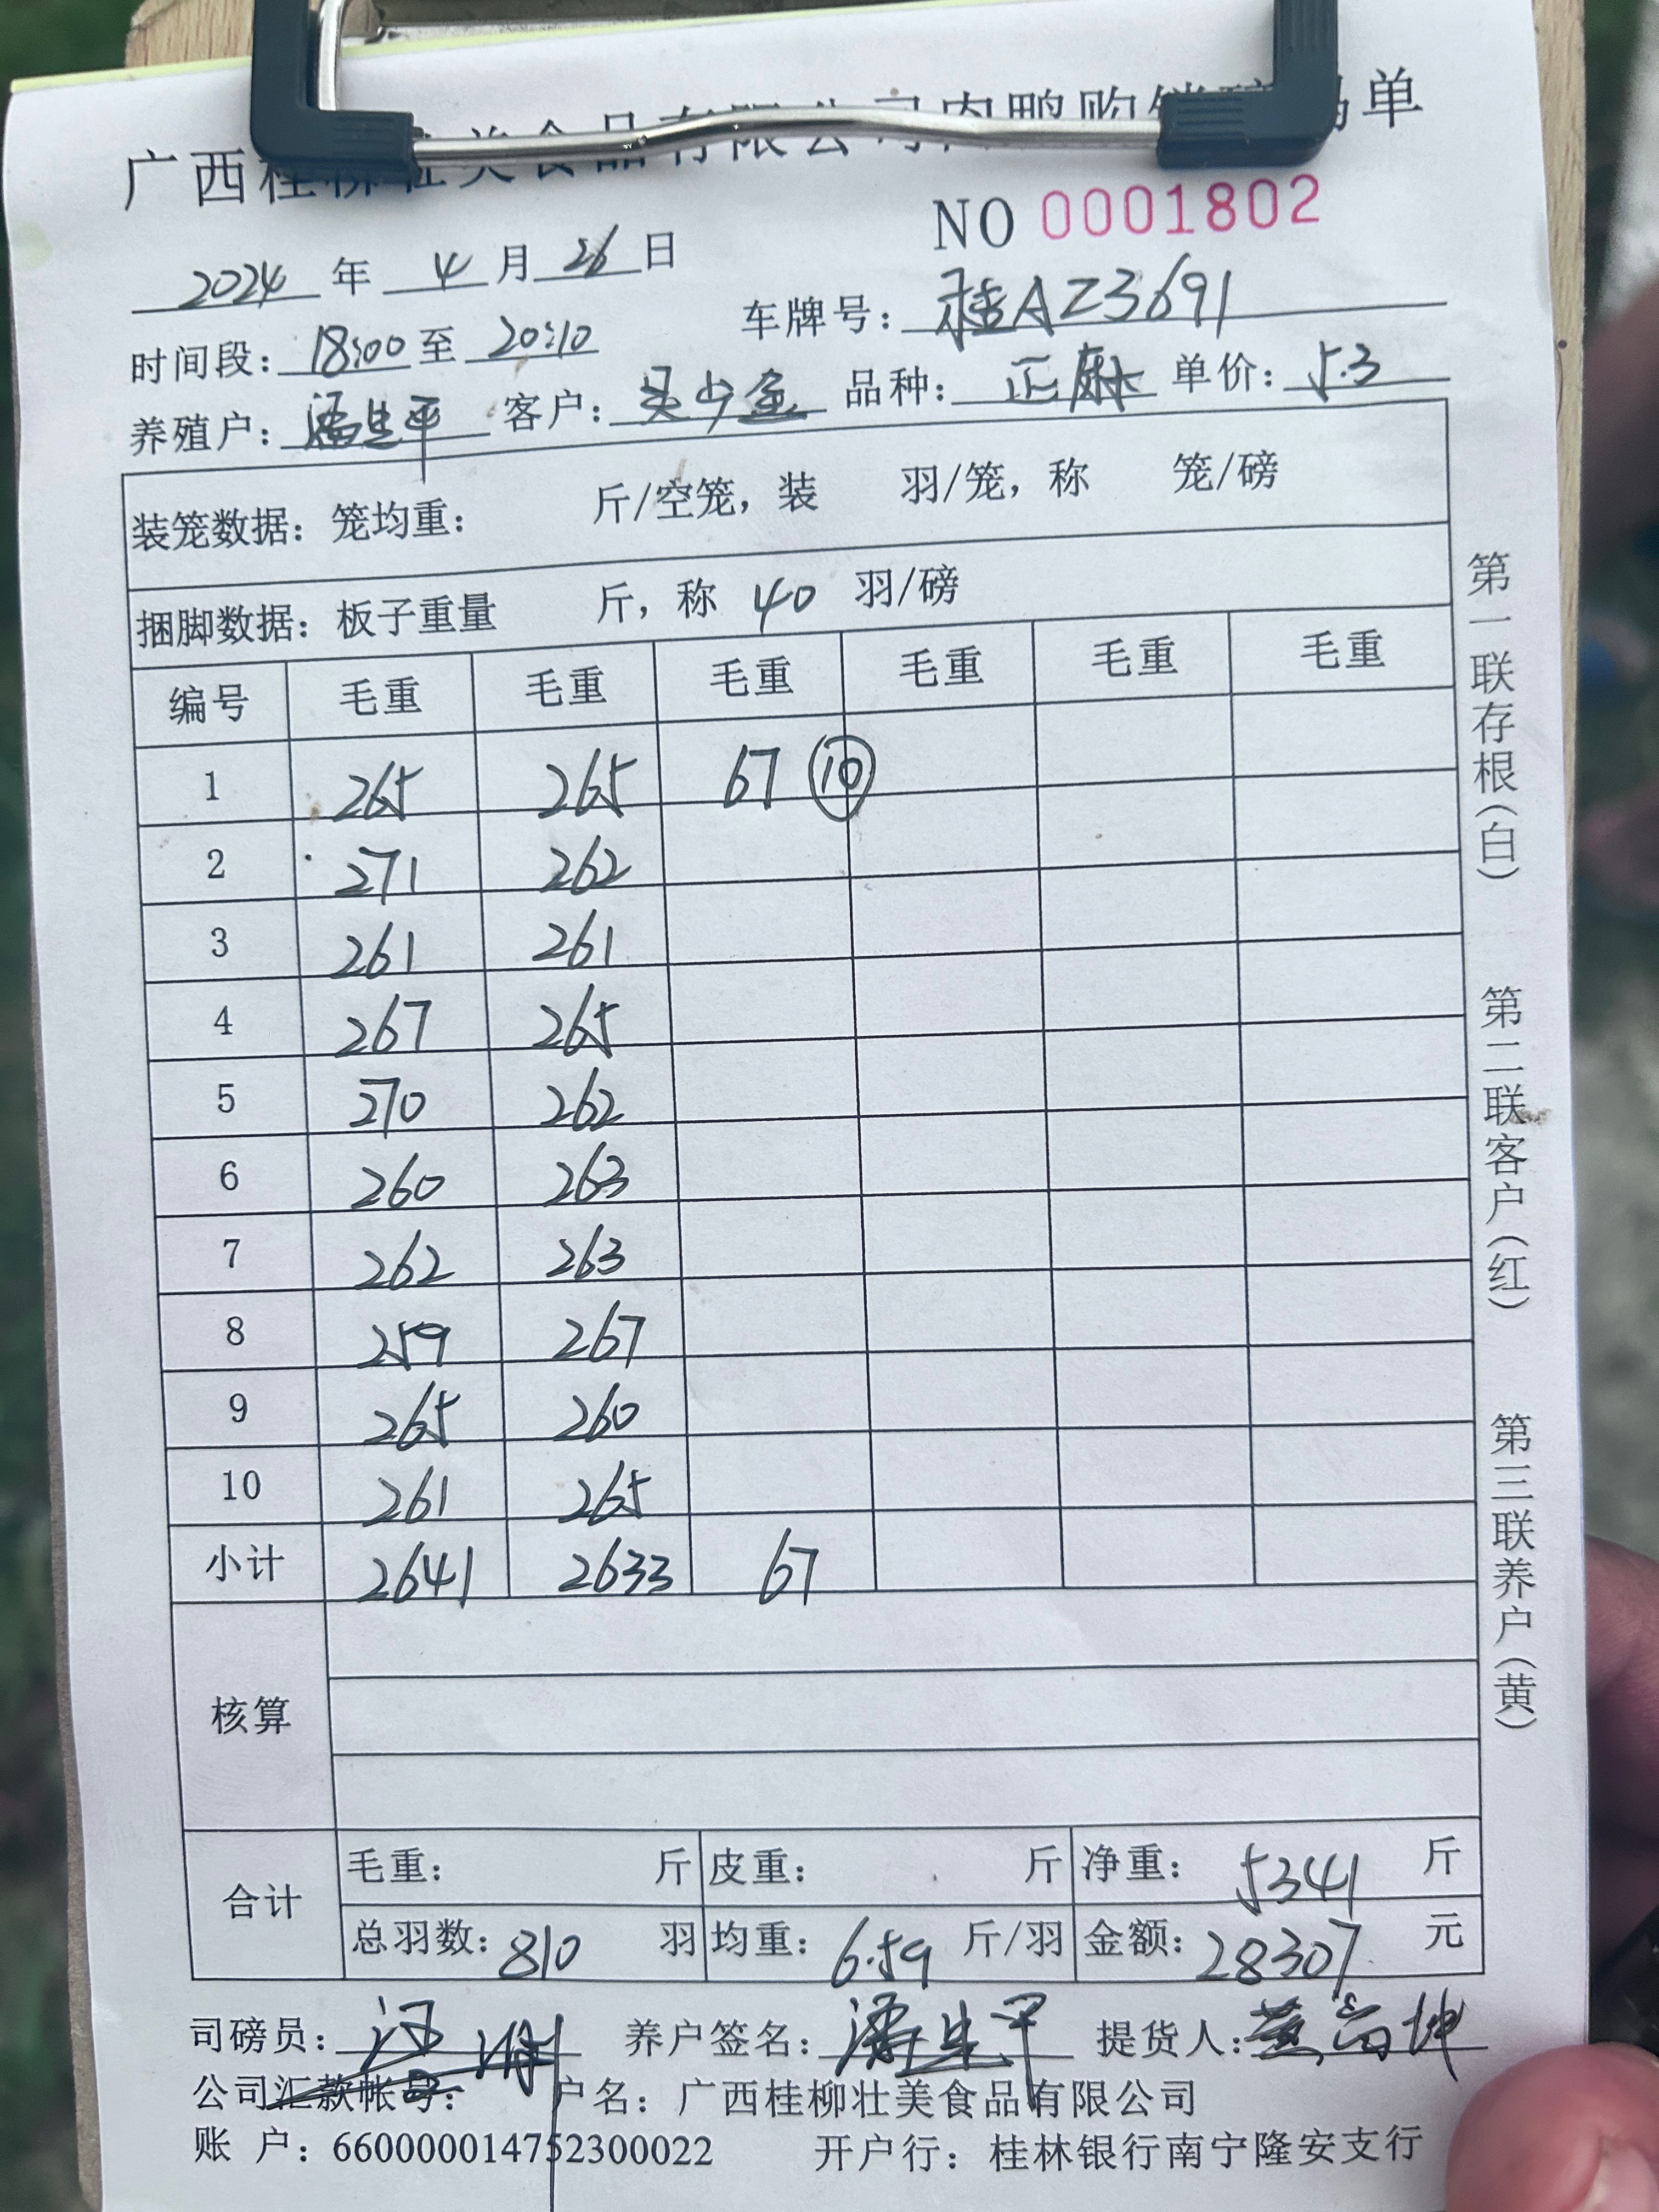 广西桂柳壮美食品有限公司肉鸭购销磅码单
NO 0001802
2024 年 4 月 26 日
车牌号: 桂AZ3691
时间段: 18:00 至 20:10
养殖户: 潘生平 客户: 吴少金 品种: 正麻 单价: 5.3
装笼数据: 笼均重: 斤/空笼, 装 羽/笼, 称 笼/磅
捆脚数据: 板子重量 斤, 称 40 羽/磅
编号 毛重 毛重 毛重 毛重 毛重 毛重
1 265 265 67 ⑩
2 271 262
3 261 261
4 267 265
5 270 262
6 260 263
7 262 263
8 259 267
9 265 260
10 261 265
小计 2641 2633 67
核算
合计
毛重: 斤 皮重: 斤 净重: 5341 斤
总羽数: 810 羽 均重: 6.59 斤/羽 金额: 28307 元
司磅员: 养户签名: 潘生平 提货人: 黄高坤
公司汇款帐号: 户名: 广西桂柳壮美食品有限公司
账 户: 660000014752300022 开户行: 桂林银行南宁隆安支行
第一联存根(白)
第二联客户(红)
第三联养户(黄)